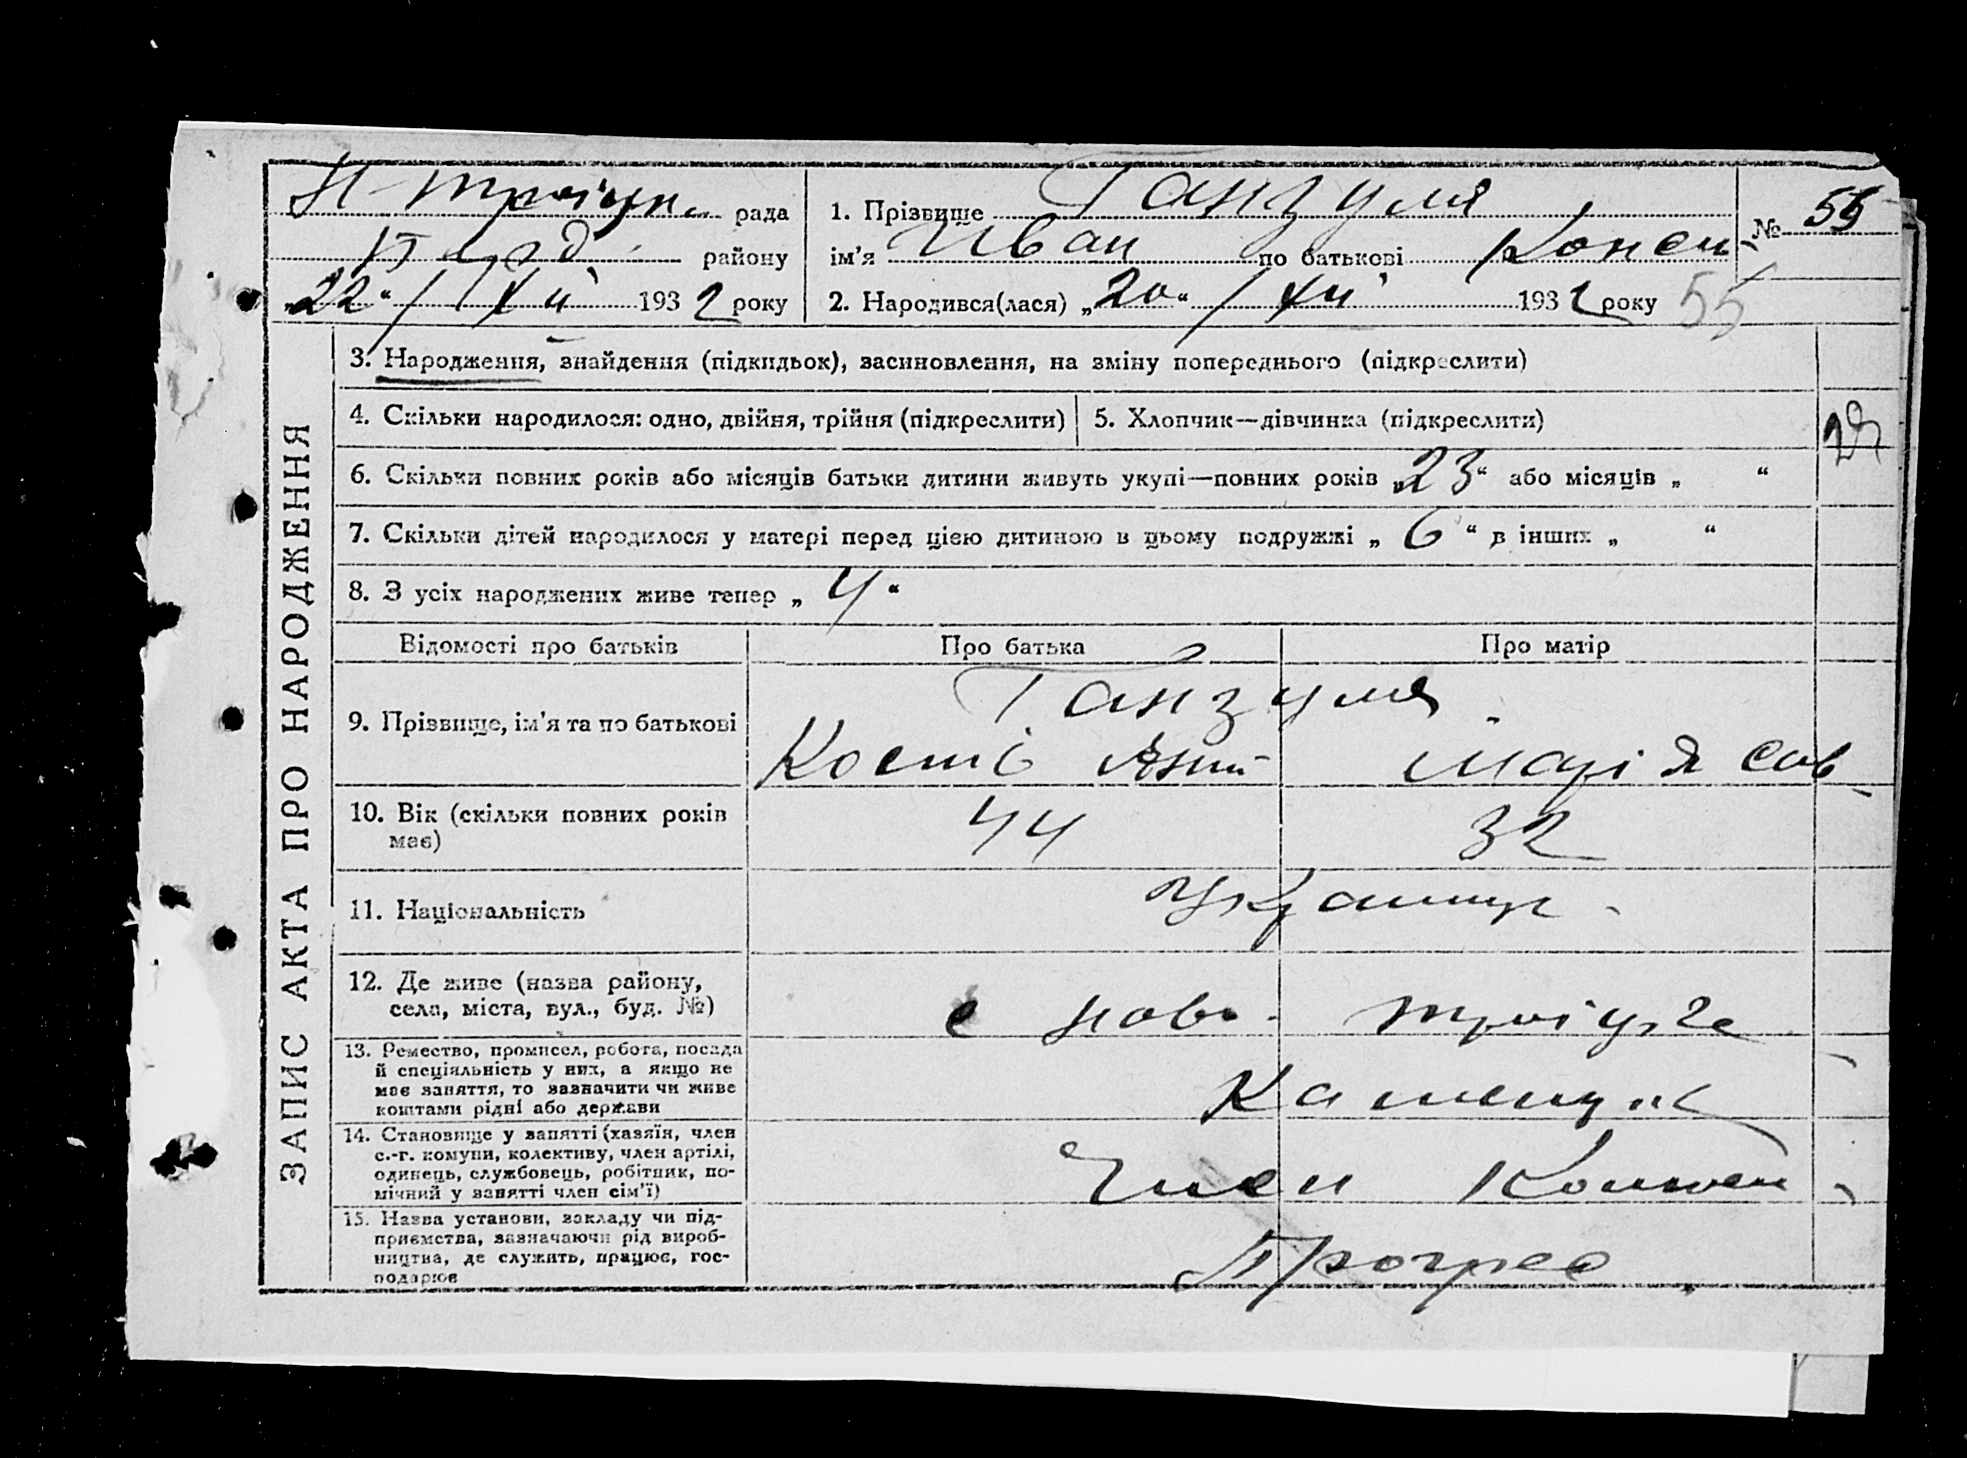 ЗАПИС АКТА ПРО НАРОДЖЕННЯ
Н-Троїцьк. рада
району
„22“ / XII 1932 року
1. Прізвище Ганзуля
ім’я Иван по батькові Конст
2. Народився(лася) „20“ / XII 1932 року
№ 55
55
3. Народження, знайдення (підкидьок), засиновлення, на зміну попереднього (підкреслити)
4. Скільки народилося: одно, двійня, трійня (підкреслити)
5. Хлопчик—дівчинка (підкреслити)
6. Скільки повних років або місяців батьки дитини живуть укупі—повних років „23“ або місяців „ “
7. Скільки дітей народилося у матері перед цією дитиною в цьому подружжі „6“ в інших „ “
8. З усіх народжених живе тепер „4“
Відомості про батьків
Про батька
Про матір
9. Прізвище, ім’я та по батькові
Ганзуля
Кость
Марія Сав
10. Вік (скільки повних років
має)
44
32
11. Національність
12. Де живе (назва району,
села, міста, вул., буд. №)
с Ново-Троіцьке
13. Ремество, промисел, робота, посада
й спеціяльність у них, а якщо не
має заняття, то зазначити чи живе
коштами рідні або держави
Каменщик
14. Становище у занятті (хазяїн, член
с.-г. комуни, колективу, член артілі,
одинець, службовець, робітник, по-
мічний у занятті член сім’ї)
Член
15. Назва установи, закладу чи під-
приємства, зазначаючи рід вироб-
ництва, де служить, працює, гос-
подарює
Прогрес